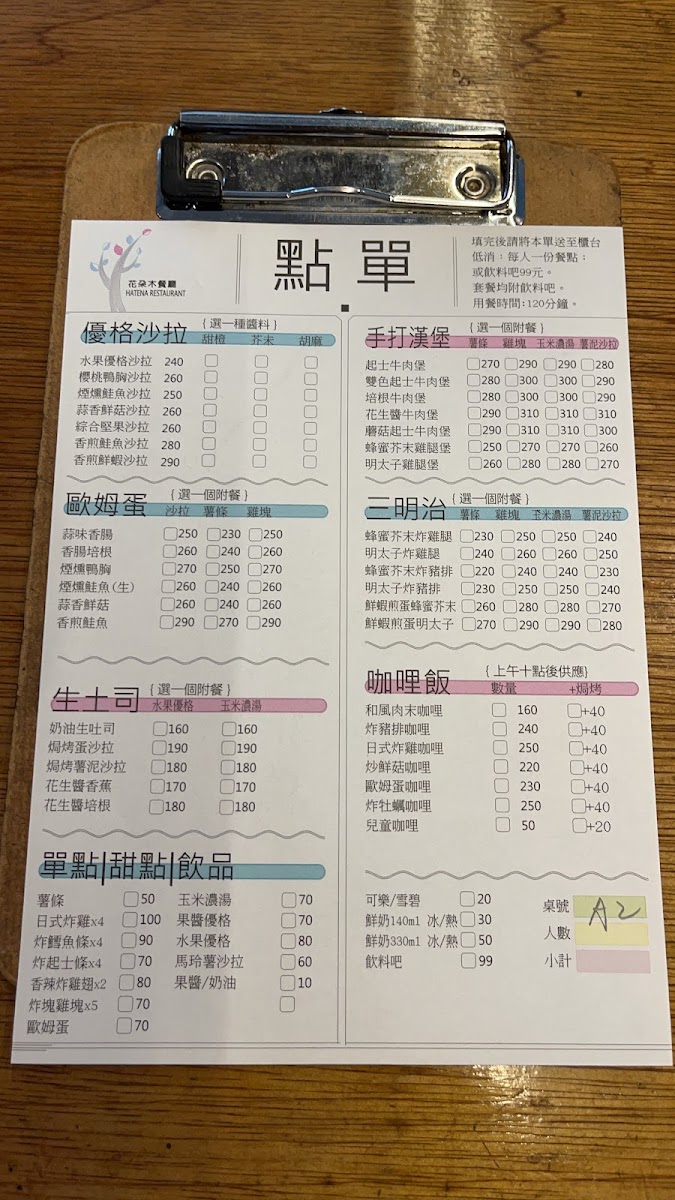 花朵木餐廳
HATENA RESTAURANT
點 單
填完後請將本單送至櫃台
低消：每人一份餐點；
或飲料吧99元。
套餐均附飲料吧。
用餐時間:120分鐘。
優格沙拉 {選一種醬料}
甜橙 芥末 胡麻
水果優格沙拉 240
櫻桃鴨胸沙拉 260
煙燻鮭魚沙拉 250
蒜香鮮菇沙拉 260
綜合堅果沙拉 260
香煎鮭魚沙拉 280
香煎鮮蝦沙拉 290
歐姆蛋 {選一個附餐}
沙拉 薯條 雞塊
蒜味香腸 250 230 250
香腸培根 260 240 260
煙燻鴨胸 270 250 270
煙燻鮭魚(生) 260 240 260
蒜香鮮菇 260 240 260
香煎鮭魚 290 270 290
生土司 {選一個附餐}
水果優格 玉米濃湯
奶油生吐司 160 160
焗烤蛋沙拉 190 190
焗烤薯泥沙拉 180 180
花生醬香蕉 170 170
花生醬培根 180 180
單點|甜點|飲品
薯條 50 玉米濃湯 70
日式炸雞x4 100 果醬優格 70
炸鱈魚條x4 90 水果優格 80
炸起士條x4 70 馬玲薯沙拉 60
香辣炸雞翅x2 80 果醬/奶油 10
炸塊雞塊x5 70
歐姆蛋 70
手打漢堡 {選一個附餐}
薯條 雞塊 玉米濃湯 薯泥沙拉
起士牛肉堡 270 290 290 280
雙色起士牛肉堡 280 300 300 290
培根牛肉堡 280 300 300 290
花生醬牛肉堡 290 310 310 310
蘑菇起士牛肉堡 290 310 310 300
蜂蜜芥末雞腿堡 250 270 270 260
明太子雞腿堡 260 280 280 270
三明治 {選一個附餐}
薯條 雞塊 玉米濃湯 薯泥沙拉
蜂蜜芥末炸雞腿 230 250 250 240
明太子炸雞腿 240 260 260 250
蜂蜜芥末炸豬排 220 240 240 230
明太子炸豬排 230 250 250 240
鮮蝦煎蛋蜂蜜芥末 260 280 280 270
鮮蝦煎蛋明太子 270 290 290 280
咖哩飯 {上午十點後供應}
數量 +焗烤
和風肉末咖哩 160 +40
炸豬排咖哩 240 +40
日式炸雞咖哩 250 +40
炒鮮菇咖哩 220 +40
歐姆蛋咖哩 230 +40
炸牡蠣咖哩 250 +40
兒童咖哩 50 +20
可樂/雪碧 20
鮮奶140ml 冰/熱 30
鮮奶330ml 冰/熱 50
飲料吧 99
桌號 A2
人數
小計